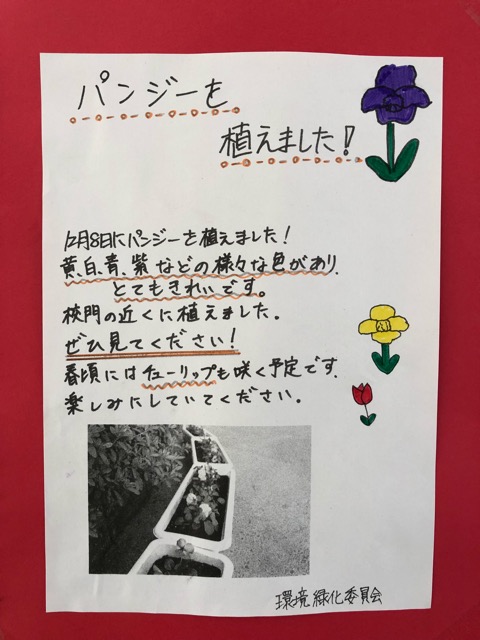 パンジーを
植えました!
12月8日にパンジーを植えました!
黄、白、青、紫などの様々な色があり、
とてもきれいです。
校門の近くに植えました。
ぜひ見てください!
春頃にはチューリップも咲く予定です。
楽しみにしていてください。
環境緑化委員会